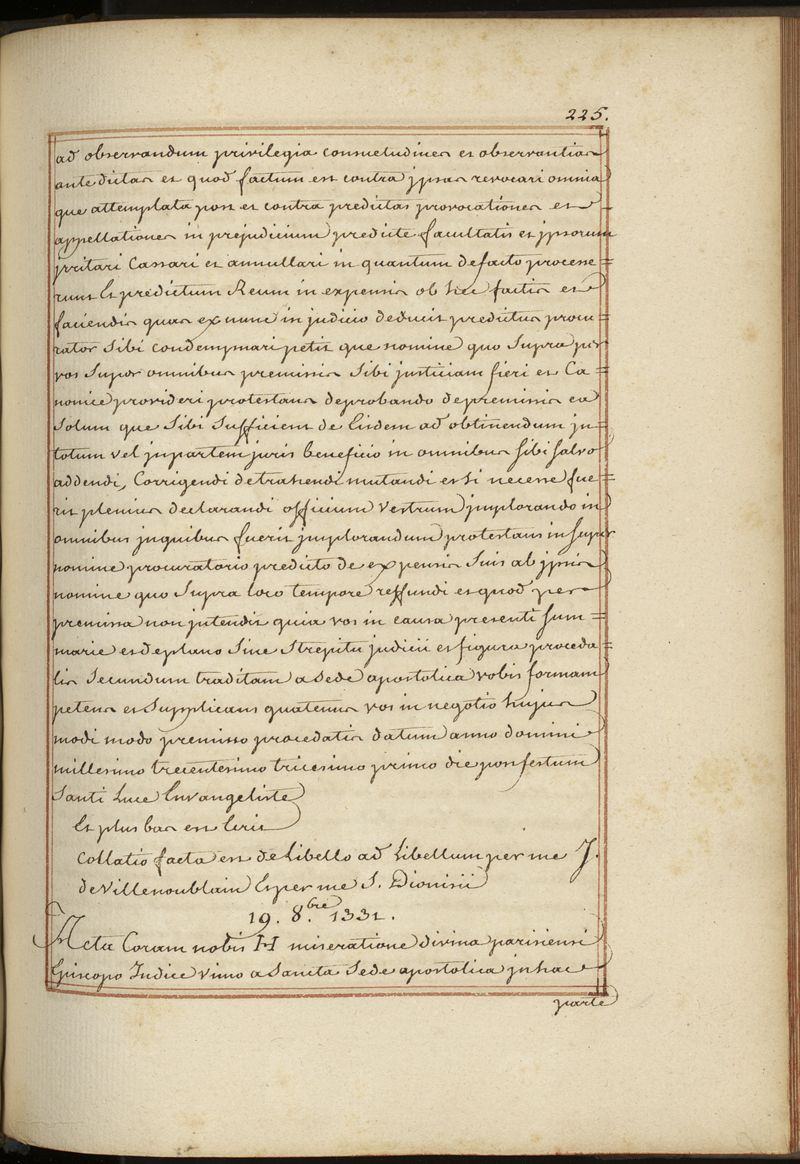 225.
ad observandum privilegia consuetudines et observantias
antedictas et quod factum est contra jpsas revocari omnia
que attemptata post et contra predictas provocationes et
appellationes in prejudicium predicte facultatis et jpsorum
jrritari Cassari et annullari in quantum defacto processe=
runt Et predictum Reum in expensis ob hec factis et
faciendis quas ex nunc in judicio deducit predictus procu=
rator Sibi condempnari petit que nomine quo Supra per
vos Super omnibus premissis Sibi justiciam fieri et Ca=
nonice provideri protestans deprobando de premissis ea
Solum que Sibi Sufficient de Eisdem ad obtinendum jn
totum vel jnpartem juris beneficio in omnibus Sibi Salvo
addendi, Corrigendi detrahendi mutandi et Si necesse fue=
rit plenius declarandi officium Vestrum jmplorando in
omnibus jnquibus fuerit jmplorandum protestans insuper
nomine procuratorio predicto de expensis Suis ab jpsis
nomine quo Supra loco tempore reffundi et quod per
premissa non jntendit quia vos in causa presenti Sum=
marie et deplano Sine Strepitu judicii et figura proceda=
tis Secundum traditam a Sede apostolica vobis formam
petens et Supplicans quatenus vos in negotio hujus
modi modo premisso procedatis datum anno domini
millesimo trecentesimo tricesimo primo die post festum
Santi Luce Envangeliste
Et plus bas est Ecrit
Collatio facta est de Libello ad Libellum per me J.
de Villenoublain Et per me S. Dionisii
19. 8.bre 1331.
Acta Coram nobis H miseratione divina parisiensi
Episcopo Judice Vnico a Sancta Sede apostolica jnhac
parte